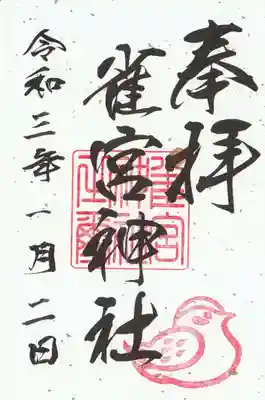 奉拝
雀宮神社
令和三年一月二日